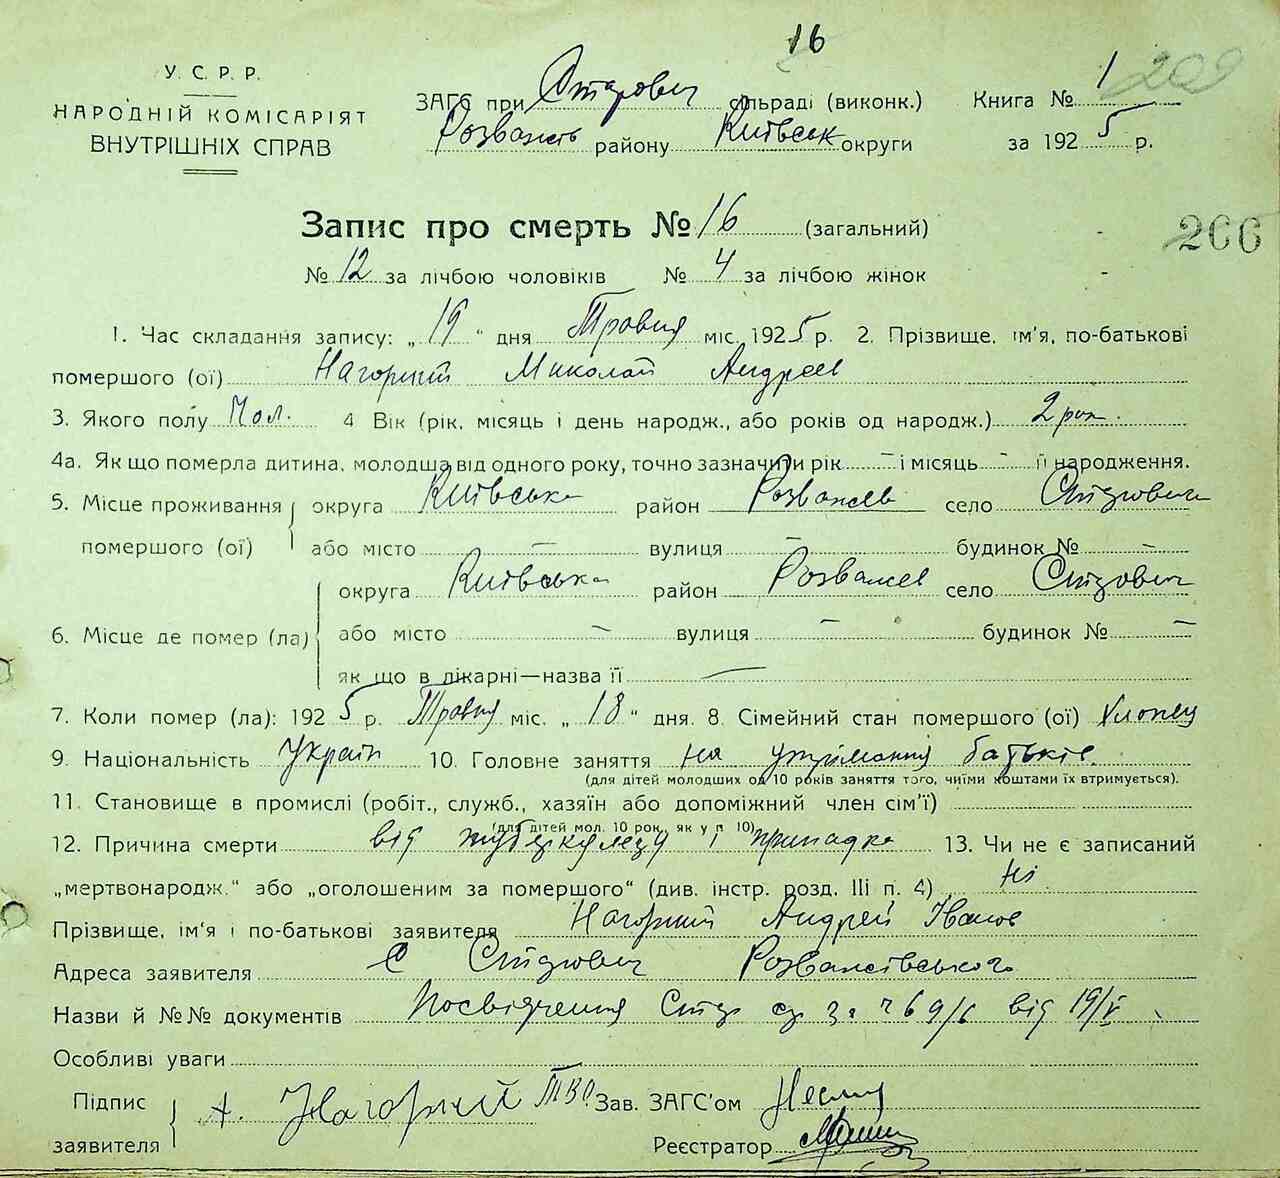 16
У. С. Р. Р.
НАРОДНІЙ КОМІСАРІЯТ
ВНУТРІШНІХ СПРАВ
ЗАГС при сільраді (виконк.)
Розваж району Київськ округи
Книга № 1 209
за 1925 р.
Запис про смерть № 16 (загальний)
266
№ 12 за лічбою чоловіків № 4 за лічбою жінок
1. Час складання запису: „19" дня Травня міс. 1925 р. 2. Прізвище, ім'я, по-батькові
помершого (ої) Нагорний Миколай Андреев
3. Якого полу Чол. 4 Вік (рік, місяць і день народж., або років од народж.) 2 рок.
4а. Як що померла дитина, молодша від одного року, точно зазначити рік – і місяць – її народження.
5. Місце проживання округа Київська район Розважев село
помершого (ої) або місто – вулиця – будинок № –
округа Київська район Розважев село
6. Місце де помер (ла) або місто – вулиця – будинок № –
як що в лікарні—назва її –
7. Коли помер (ла): 1925 р. Травня міс. „18" дня. 8. Сімейний стан помершого (ої) Хлопец
9. Національність Україн 10. Головне заняття на утримання батьків.
(для дітей молодших од 10 років заняття того, чиїми коштами їх втримується).
11. Становище в промислі (робіт., служб., хазяїн або допоміжний член сім'ї)
(для дітей мол. 10 рок., як у п 10)
12. Причина смерти від туберкулезу і припадка 13. Чи не є записаний
„мертвонародж." або „оголошеним за помершого" (див. інстр. розд. III п. 4) Ні
Прізвище, ім'я і по-батькові заявителя Нагорний Андрей Іванов
Адреса заявителя с Розважівського
Назви й №№ документів Посвідчення за ч 69/6 від 19/V
Особливі уваги
Підпис
заявителя А. Нагорний ТВО Зав. ЗАГС'ом
Реєстратор